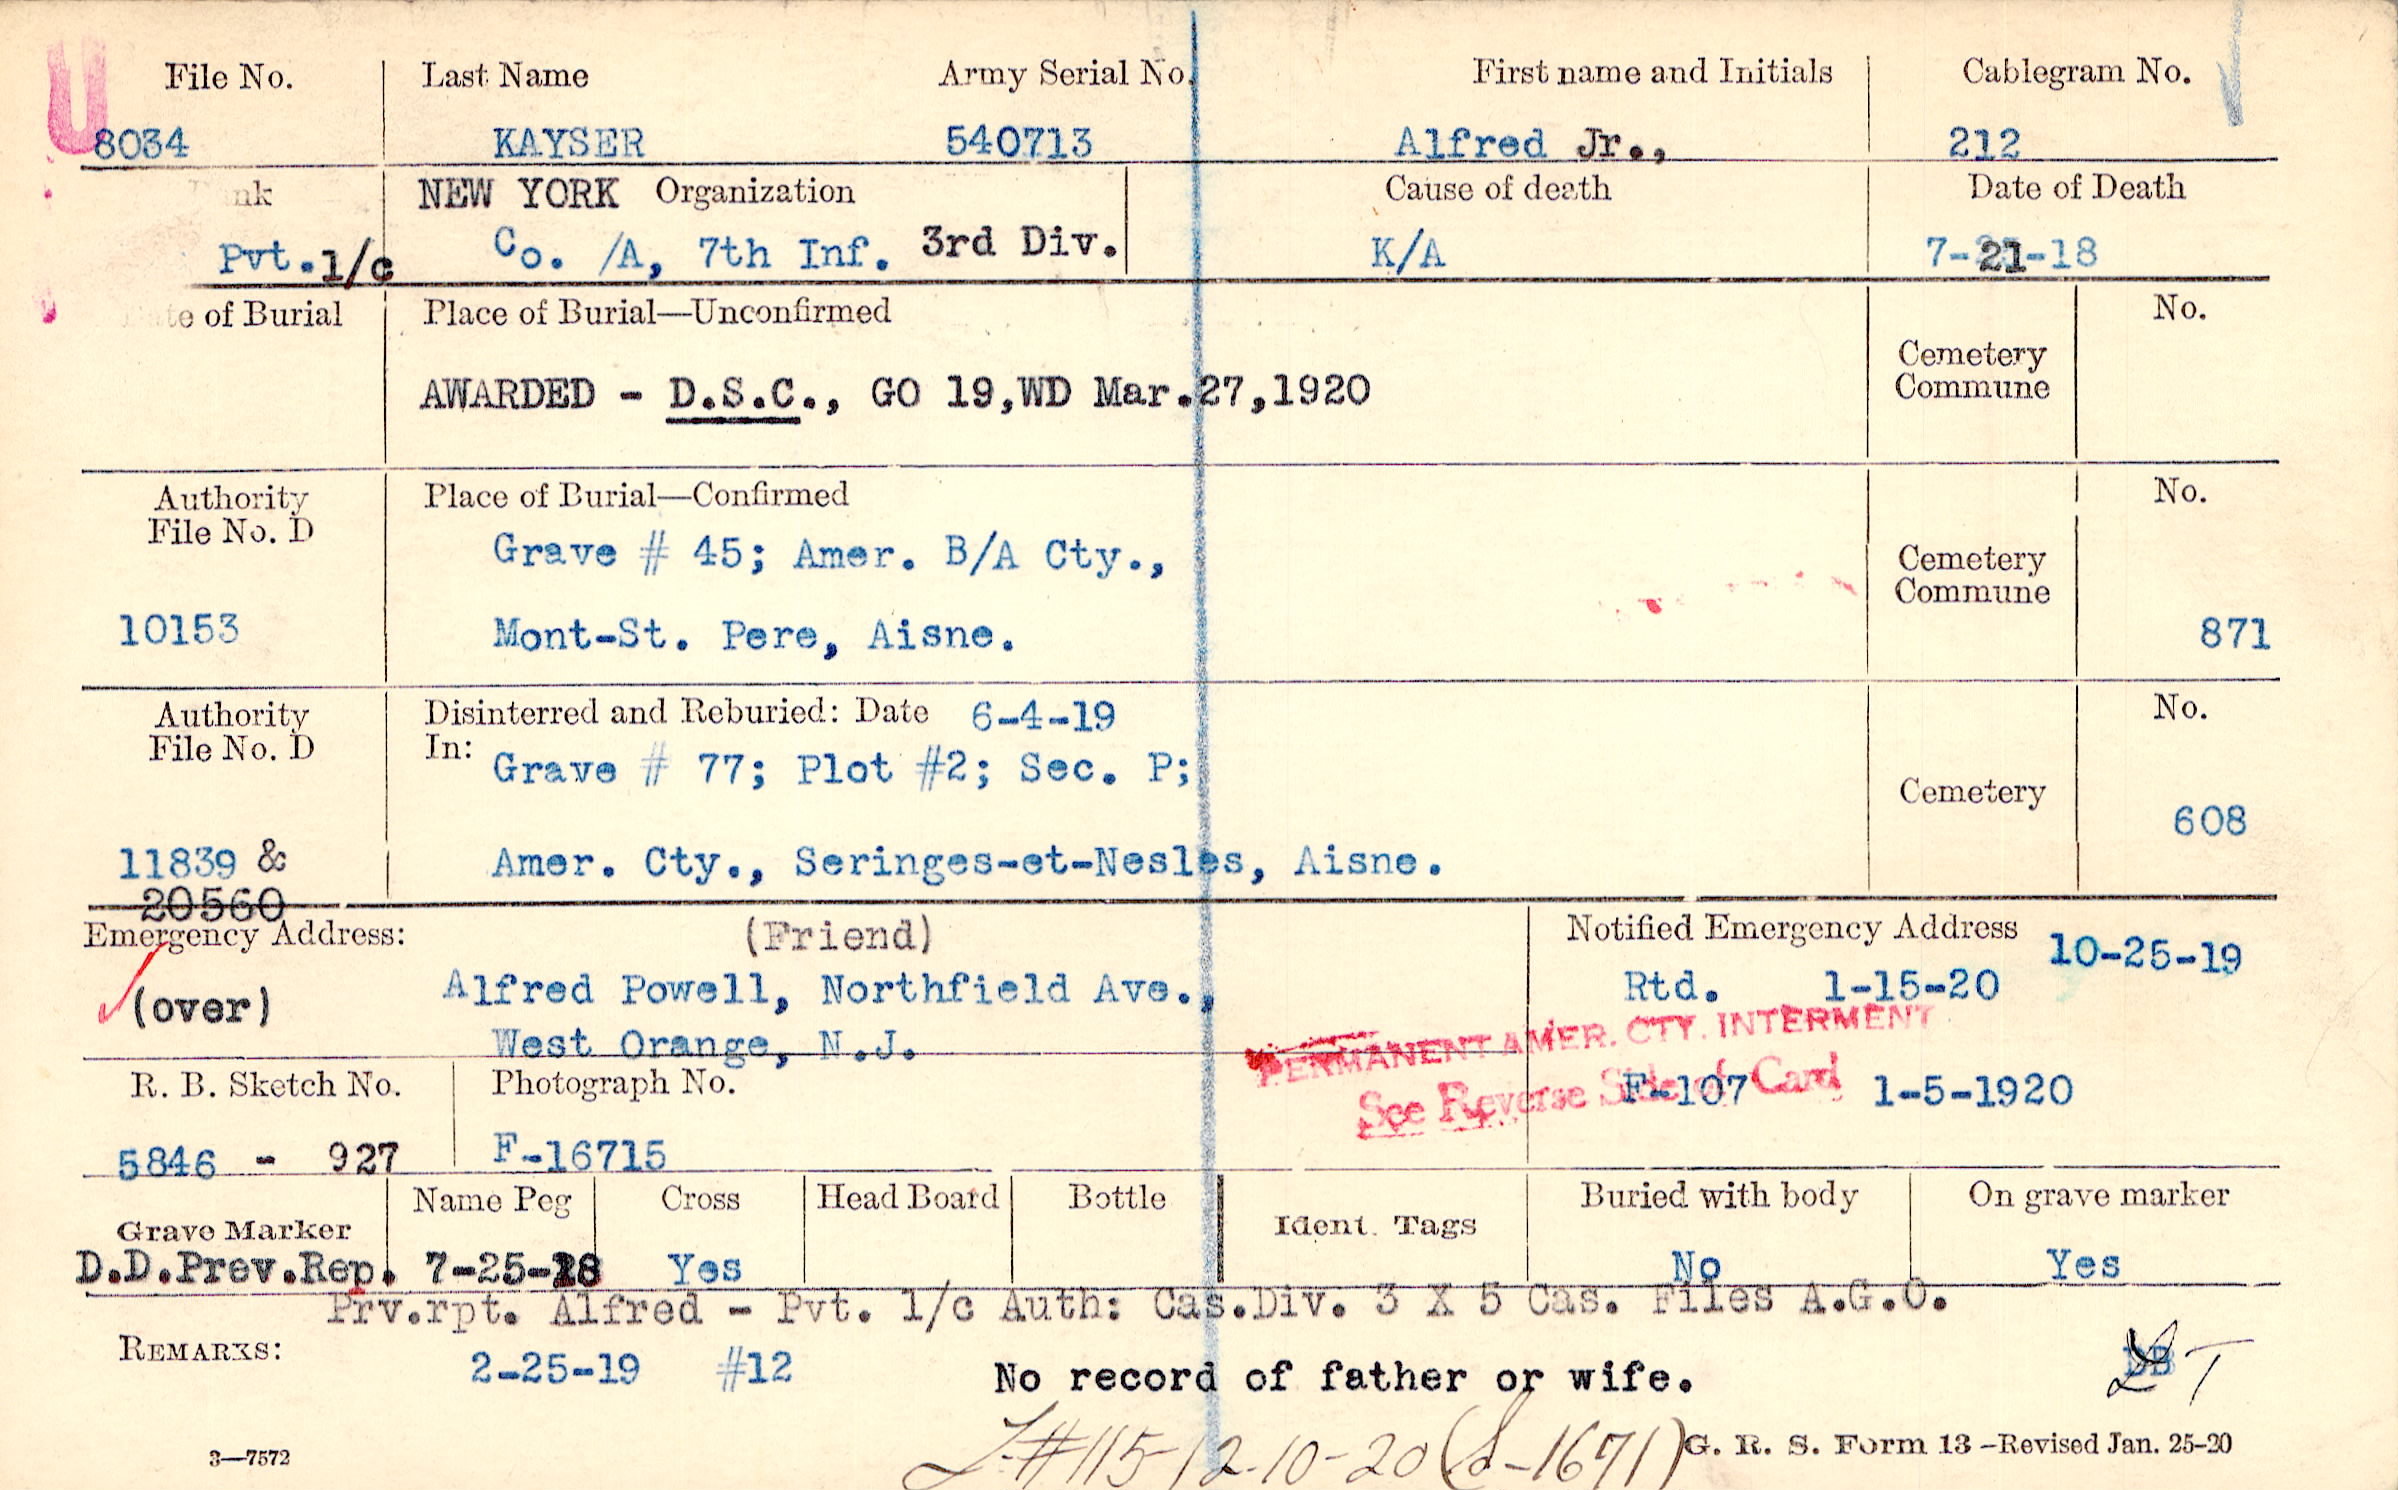 File No. Last Name Army Serial No. First name and Initials Cablegram No.
U
8034 KAYSER 540713 Alfred Jr., 212
NEW YORK Organization Cause of death Date of Death
Pvt. 1/c Co. /A, 7th Inf. 3rd Div. K/A 7-21-18
of Burial Place of Burial—Unconfirmed No.
Cemetery
Commune
AWARDED - D.S.C., GO 19,WD Mar.27,1920
Authority Place of Burial—Confirmed No.
File No. D
Grave # 45; Amer. B/A Cty., Cemetery
Commune
10153 Mont-St. Pere, Aisne. 871
Authority Disinterred and Reburied: Date 6-4-19 No.
File No. D In:
Grave # 77; Plot #2; Sec. P;
Cemetery
608
11839 & Amer. Cty., Seringes-et-Nesles, Aisne.
20560
Emergency Address: (Friend) Notified Emergency Address 10-25-19
(over) Alfred Powell, Northfield Ave., Rtd. 1-15-20
West Orange, N.J.
PERMANENT AMER. CTY. INTERMENT
See Reverse Side of Card
R. B. Sketch No. Photograph No. F-107 1-5-1920
5846 - 927 F-16715
Grave Marker Name Peg Cross Head Board Bottle Ident. Tags Buried with body On grave marker
D.D.Prev.Rep. 7-25-18 Yes No Yes
Prv.rpt. Alfred - Pvt. 1/c Auth: Cas.Div. 3 X 5 Cas. Files A.G.O.
REMARKS:
2-25-19 #12 No record of father or wife. DB
#115-12-10-20 -1671)
3—7572 G. R. S. Form 13 -Revised Jan. 25-20